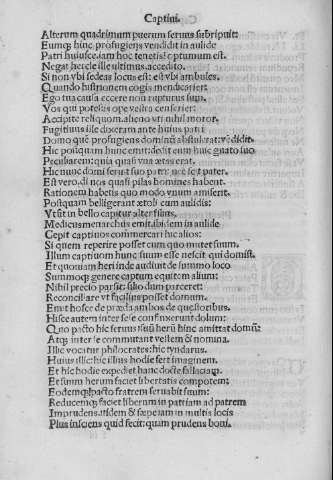 Captiui.
Alterum quadrimum puerum seruus subripuit:
Eumq; hinc profugiens vendidit in aulide
Patri huiusce.iam hoc tenetis? optumum est.
Negat hercle ille vltimus.accedito.
Si non vbi sedeas locus est: est vbi ambules.
Quando histrionem cogis mendicarier:
Ego tua causa ne erre non rupturus sum.
Vos qui potestis ope vestra censerier:
Accipite reliquom.alieno vti nihil moror.
Fugitiuus ille dixeram ante huius patri
Domo quē profugiens dominū abstulerat: vēdidit.
Hic postquam hunc emit: dedit eum huic gnato suo
Peculiarem: quia quasi vna ætas erat.
Hic nunc domi seruit suo patri: nec scit pater.
Est vero.di nos quasi pilas homines habent.
Rationem habetis quo modo vnum amiserit.
Postquam belligerant ætoli cum aulidis:
Vt fit in bello capitur alter filius.
Medicus menarchus emit.ibidem in aulide
Cepit captiuos commercari hic alios:
Si quem reperire posset cum quo mutet suum.
Illum captiuom hunc suum esse nescit qui domist.
Et quoniam heri inde audiuit de summo loco
Summoq; genere captum equitem alium:
Nihil precio parsit: filio dum parceret:
Reconciliare vt facilius posset domum.
Emit hosce de præda ambos de quæstoribus.
Hisce autem inter sese confinxerunt dolum:
Quo pacto hic seruus suū herū hinc amittat domū:
Atq; inter se commutant vestem & nomina.
Illic vocatur philocrates: hic tyndarus.
Huius ille: hic illius hodie fert imaginem.
Et hic hodie expediet hanc docte fallaciam.
Et suum herum faciet libertatis compotem:
Eodemq; pacto fratrem seruabit suum:
Reducemq; faciet liberum in patriam ad patrem
Imprudens.itidem & sæpe iam in multis locis
Plus insciens quid fecit: quam prudens boni.